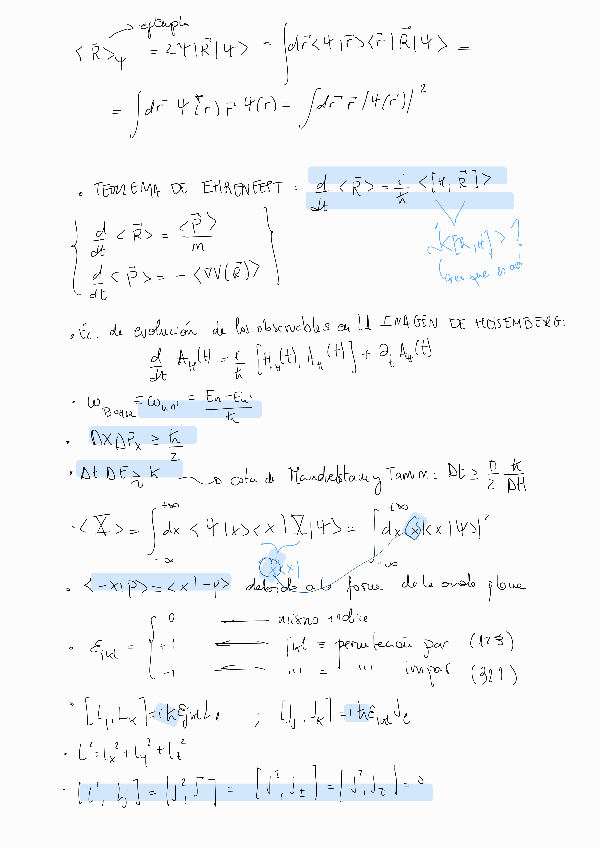 ejemplo
<R⃗>_ψ = <ψ|R⃗|ψ> = ∫dr⃗ <ψ|r⃗><r⃗|R⃗|ψ> =
= ∫dr⃗ ψ*(r) r⃗ ψ(r) = ∫dr⃗ r⃗ |ψ(r⃗)|²
• TEOREMA DE EHRENFEST: d/dt <R⃗> = i/ħ <[H, R⃗]>
d/dt <R⃗> = <p⃗>/m
¿<[R,H]>?
d/dt <p⃗> = -<∇V(R⃗)>
Creo que
• Ec. de evolución de los observables en LA IMAGEN DE HEISEMBERG:
d/dt A_H(t) = i/ħ [H_H(t), A_H(t)] + ∂_t A_H(t)
• ω_Bohr = ω_nn' = (En - En')/ħ
• ΔX ΔP_x ≥ ħ/2
• Δt ΔE ≳ ħ → cota de Mandelstam y Tamm: Δt ≥ π/2 ħ/ΔH
• <X> = ∫_{-∞}^{+∞} dx <ψ|x><x|X|ψ> = ∫_{-∞}^{+∞} dx x |<x|ψ>|²
x<x|
• <-x|p> = <x|-p> debido a la forma de la onda plana
0 ← mismo índice
• ε_jkl = +1 ← jkl = permutación par (123)
-1 ← "" = "" impar (321)
• [L_j, L_k] = iħ ε_jkl L_l ; [J_j, J_k] = iħ ε_jkl J_l
• L² = L_x² + L_y² + L_z²
• [L², L_j] = [J², J⃗] = [J², J_±] = [J², J_z] = 0